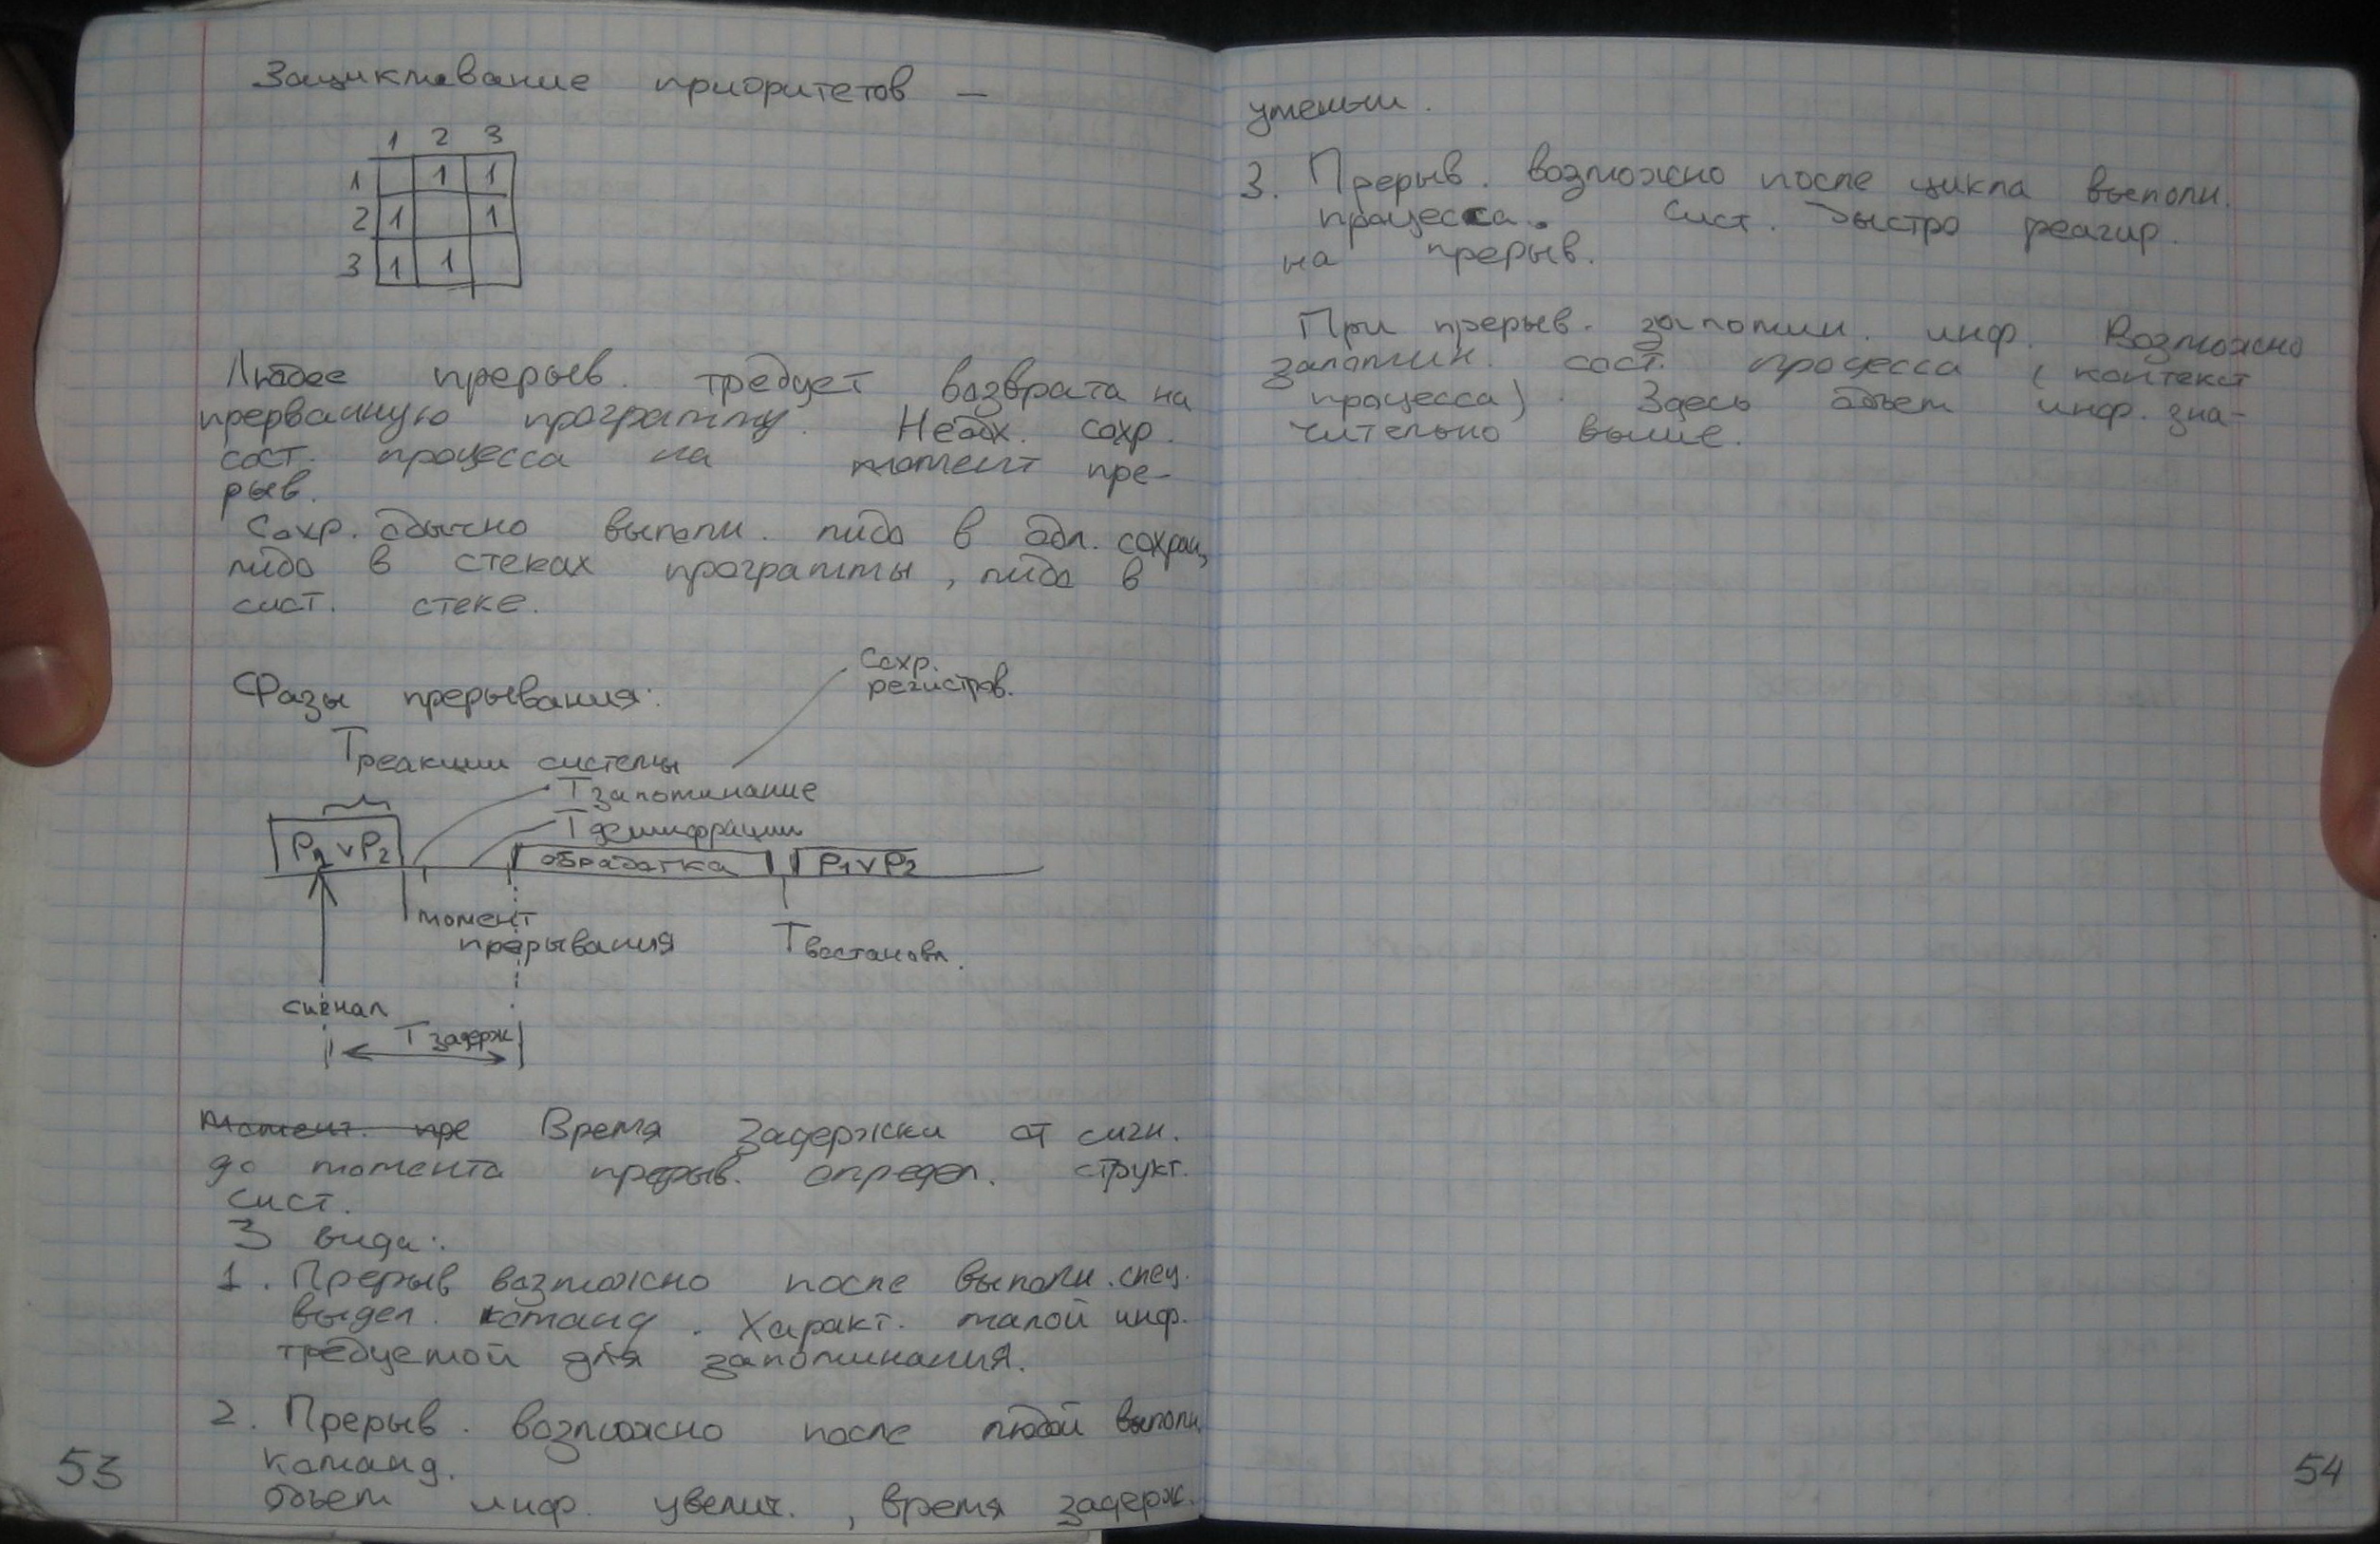 Зацикливание приоритетов —
1 2 3
1 1 1
2 1 1
3 1 1
Любое прерыв. требует возврата на
прерванную программу. Необх. сохр.
сост. процесса на момент пре-
рыв.
Сохр. обычно выполн. либо в обл. сохран,
либо в стеках программы, либо в
сист. стеке.
Сохр.
регистров.
Фазы прерывания:
Треакции системы
Т запоминание
Т дешифрации
P1 v P2 обработка P1 v P2
момент
прерывания Т востановл.
сигнал
Т задерж
Момент пре Время задержки от сигн.
до момента прерыв. определ. структ.
сист.
3 вида:
1. Прерыв возможно после выполн. спец.
выдел. команд. Характ. малой инф.
требуемой для запоминания.
2. Прерыв. возможно после любой выполн
команд.
Объем инф. увелич., время задерж.
53
уменьш.
3. Прерыв. возможно после цикла выполн.
процесса. Сист. быстро реагир.
на прерыв.
При прерыв. запомин. инф. Возможно
запомин. сост. процесса (контекст
процесса). Здесь объем инф. зна-
чительно выше.
54